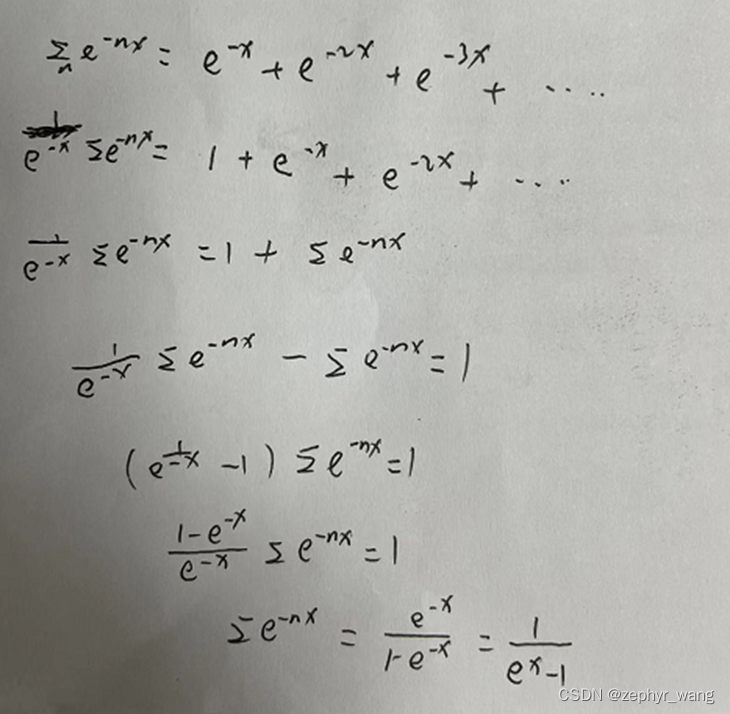 Σₙ e^{-nx} = e^{-x} + e^{-2x} + e^{-3x} + ....
1/e^{-x} Σe^{-nx} = 1 + e^{-x} + e^{-2x} + ....
1/e^{-x} Σe^{-nx} = 1 + Σe^{-nx}
1/e^{-x} Σe^{-nx} - Σe^{-nx} = 1
(1/e^{-x} - 1) Σe^{-nx} = 1
(1-e^{-x})/e^{-x} Σe^{-nx} = 1
Σe^{-nx} = e^{-x}/(1-e^{-x}) = 1/(e^{x}-1)
CSDN @zephyr_wang